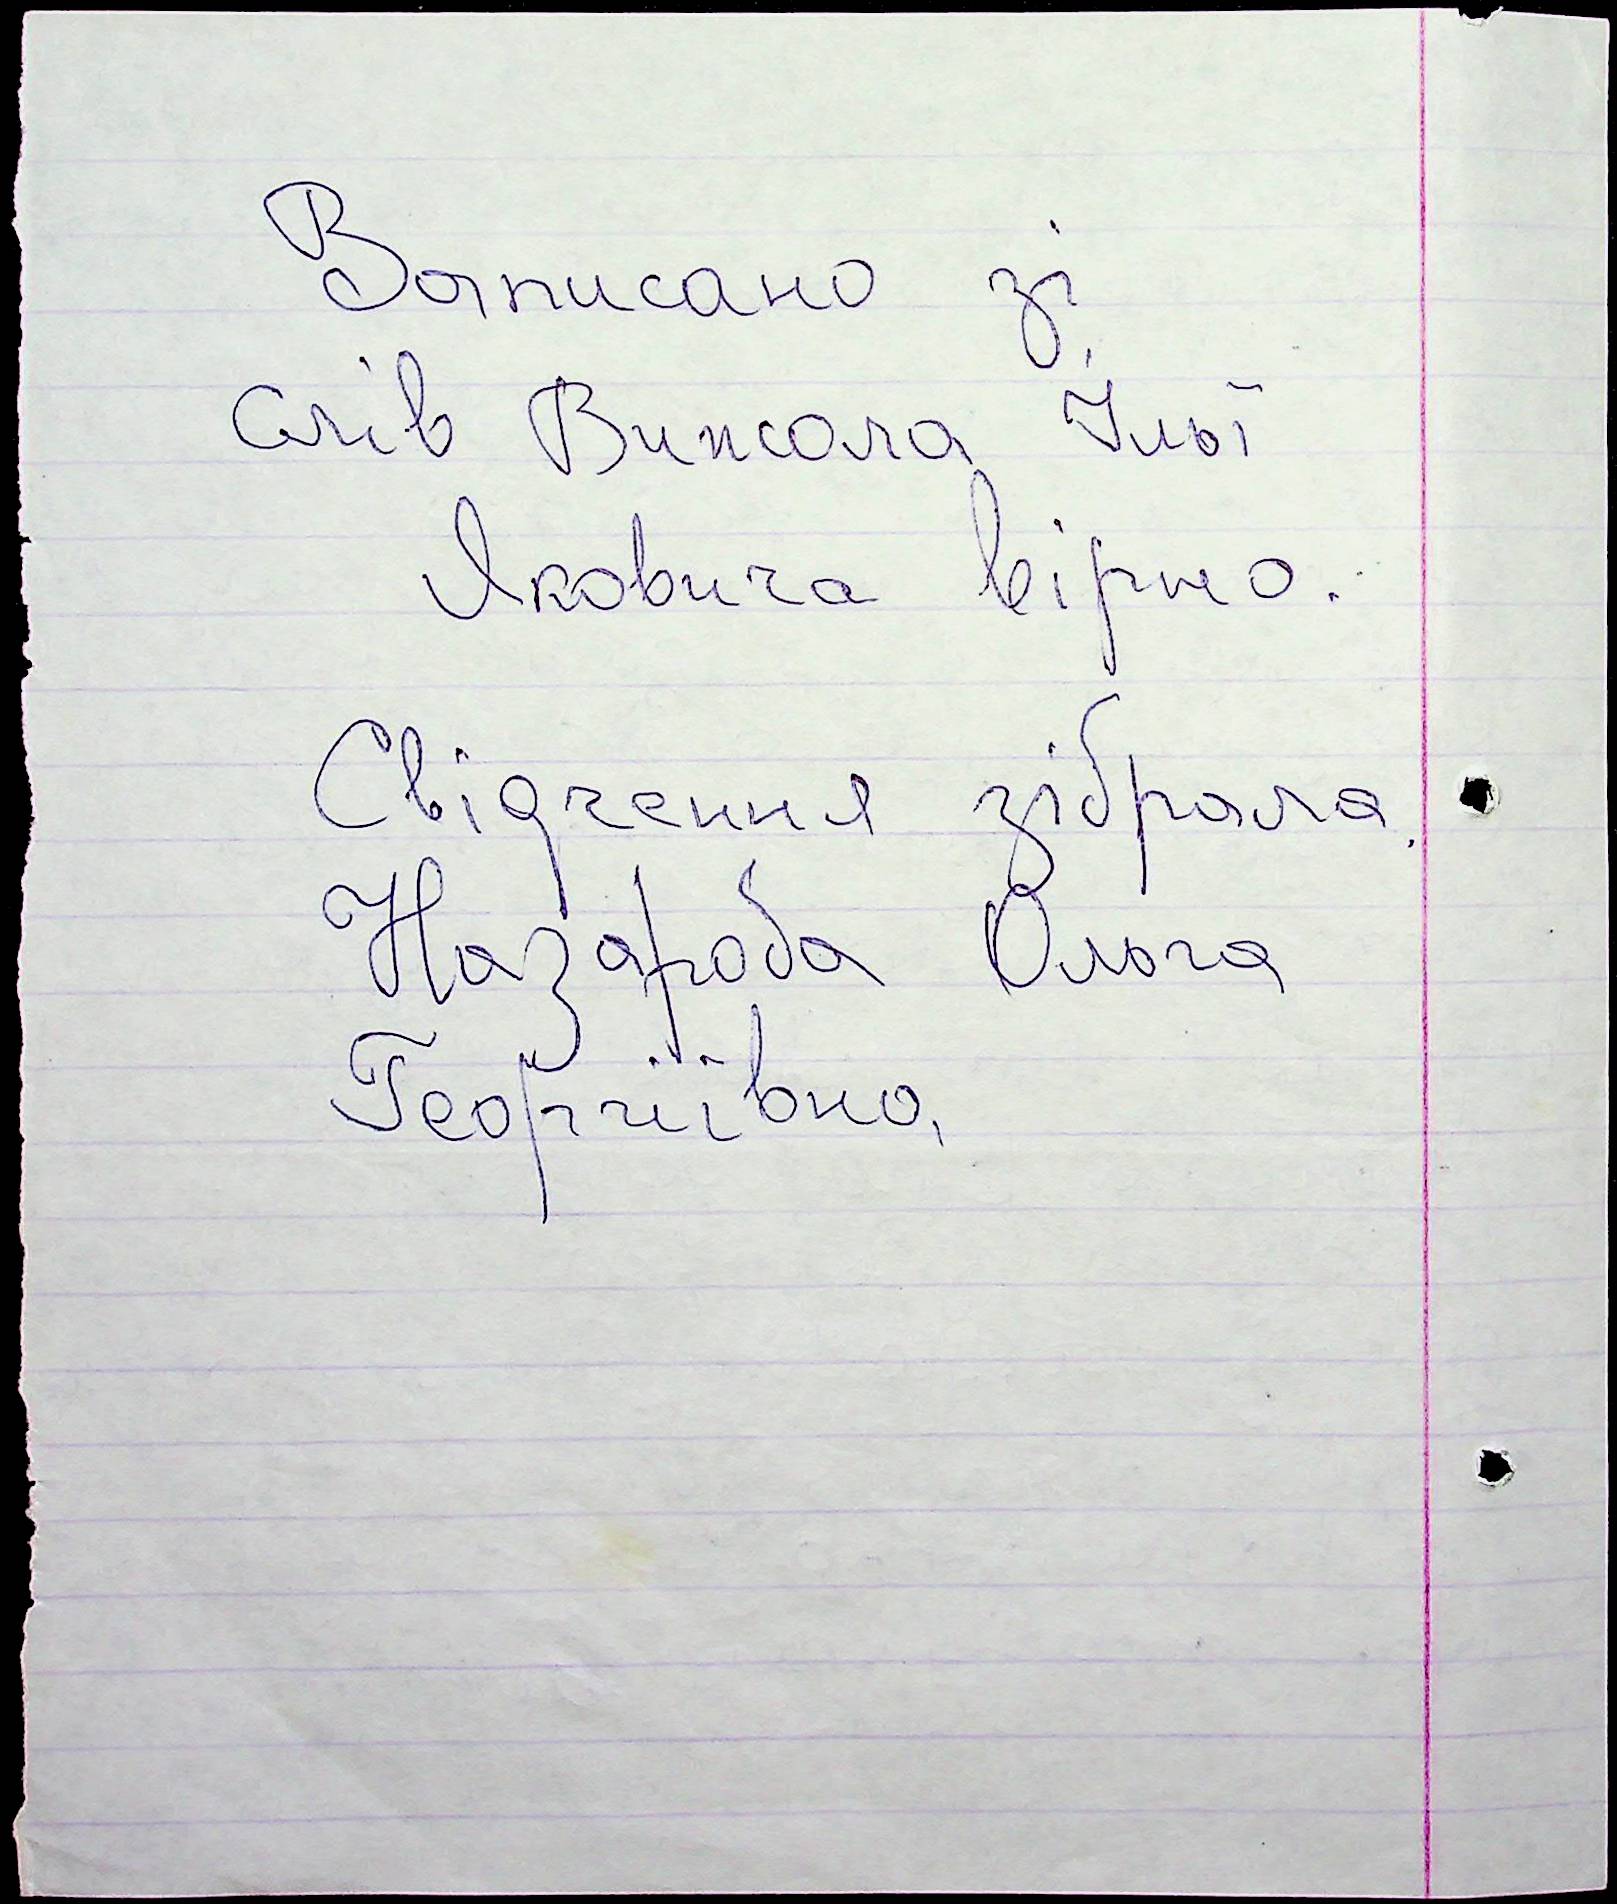 Записано зі
слів Вижола Ільї
Яковича вірно.
Свідчення зібрала
Назароба Ольга
Георгіївна